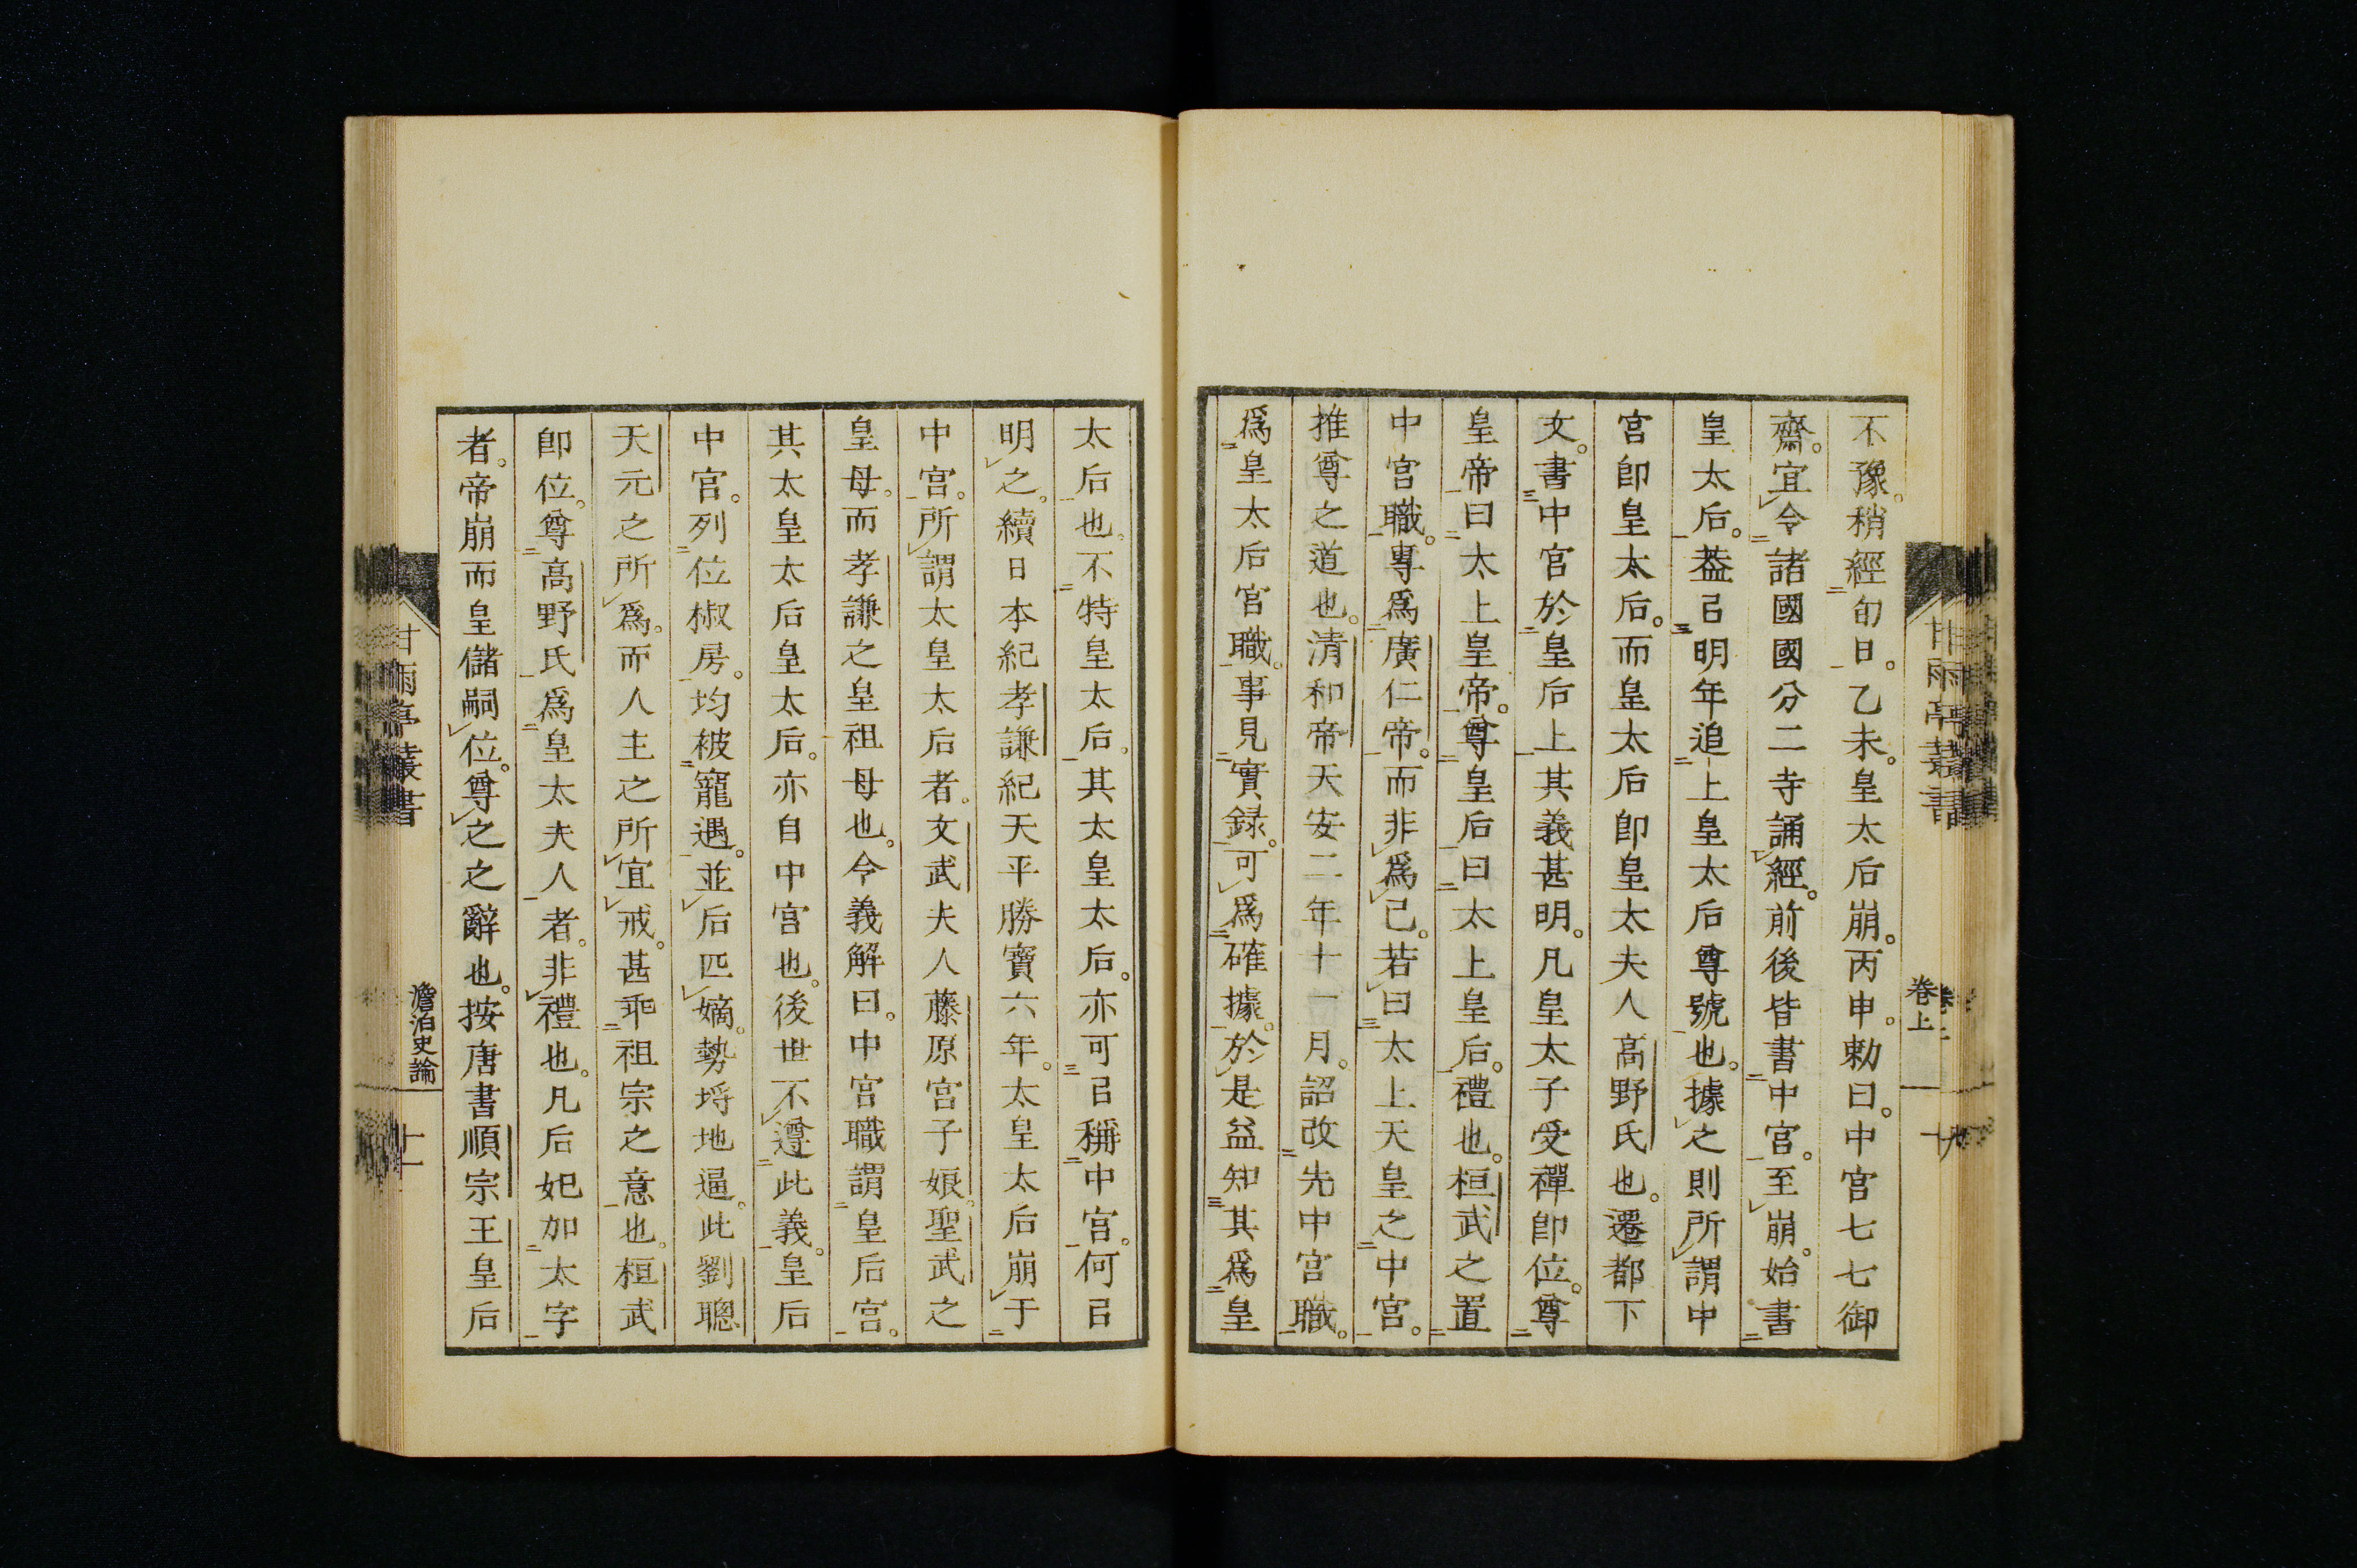 不豫。稍經旬日。乙未。皇太后崩。丙申。勅曰。中宮七七御
齋。宜令諸國國分二寺誦經。前後皆書中宮。至崩。始書
皇太后。葢㠯明年追上皇太后尊號也。據之則所謂中
宮卽皇太后。而皇太后卽皇太夫人高野氏也。遷都下
文。書中宮於皇后上其義甚明。凡皇太子受禪卽位。尊
皇帝曰太上皇帝。尊皇后曰太上皇后。禮也。桓武之置
中宮職。專爲廣仁帝。而非爲己。若曰太上天皇之中宮。
推尊之道也。淸和帝天安二年十一月。詔改先中宮職。
爲皇太后宮職。事見實録。可爲確據。於是益知其爲皇
太后也。不特皇太后。其太皇太后。亦可㠯稱中宮。何㠯
明之。續日本紀孝謙紀天平勝寶六年。太皇太后崩于
中宮。所謂太皇太后者。文武夫人藤原宮子娘。聖武之
皇母。而孝謙之皇祖母也。令義解曰。中宮職謂皇后宮。
其太皇太后皇太后。亦自中宮也。後世不遵此義。皇后
中宮。列位椒房。均被寵遇。並后匹嫡。勢埒地逼。此劉聰
天元之所爲。而人主之所宜戒。甚乖祖宗之意也。桓武
卽位。尊高野氏爲皇太夫人者。非禮也。凡后妃加太字
者。帝崩而皇儲嗣位。尊之之辭也。按唐書順宗王皇后
甘雨亭叢書
卷上
甘雨亭叢書
澹泊史論
十一